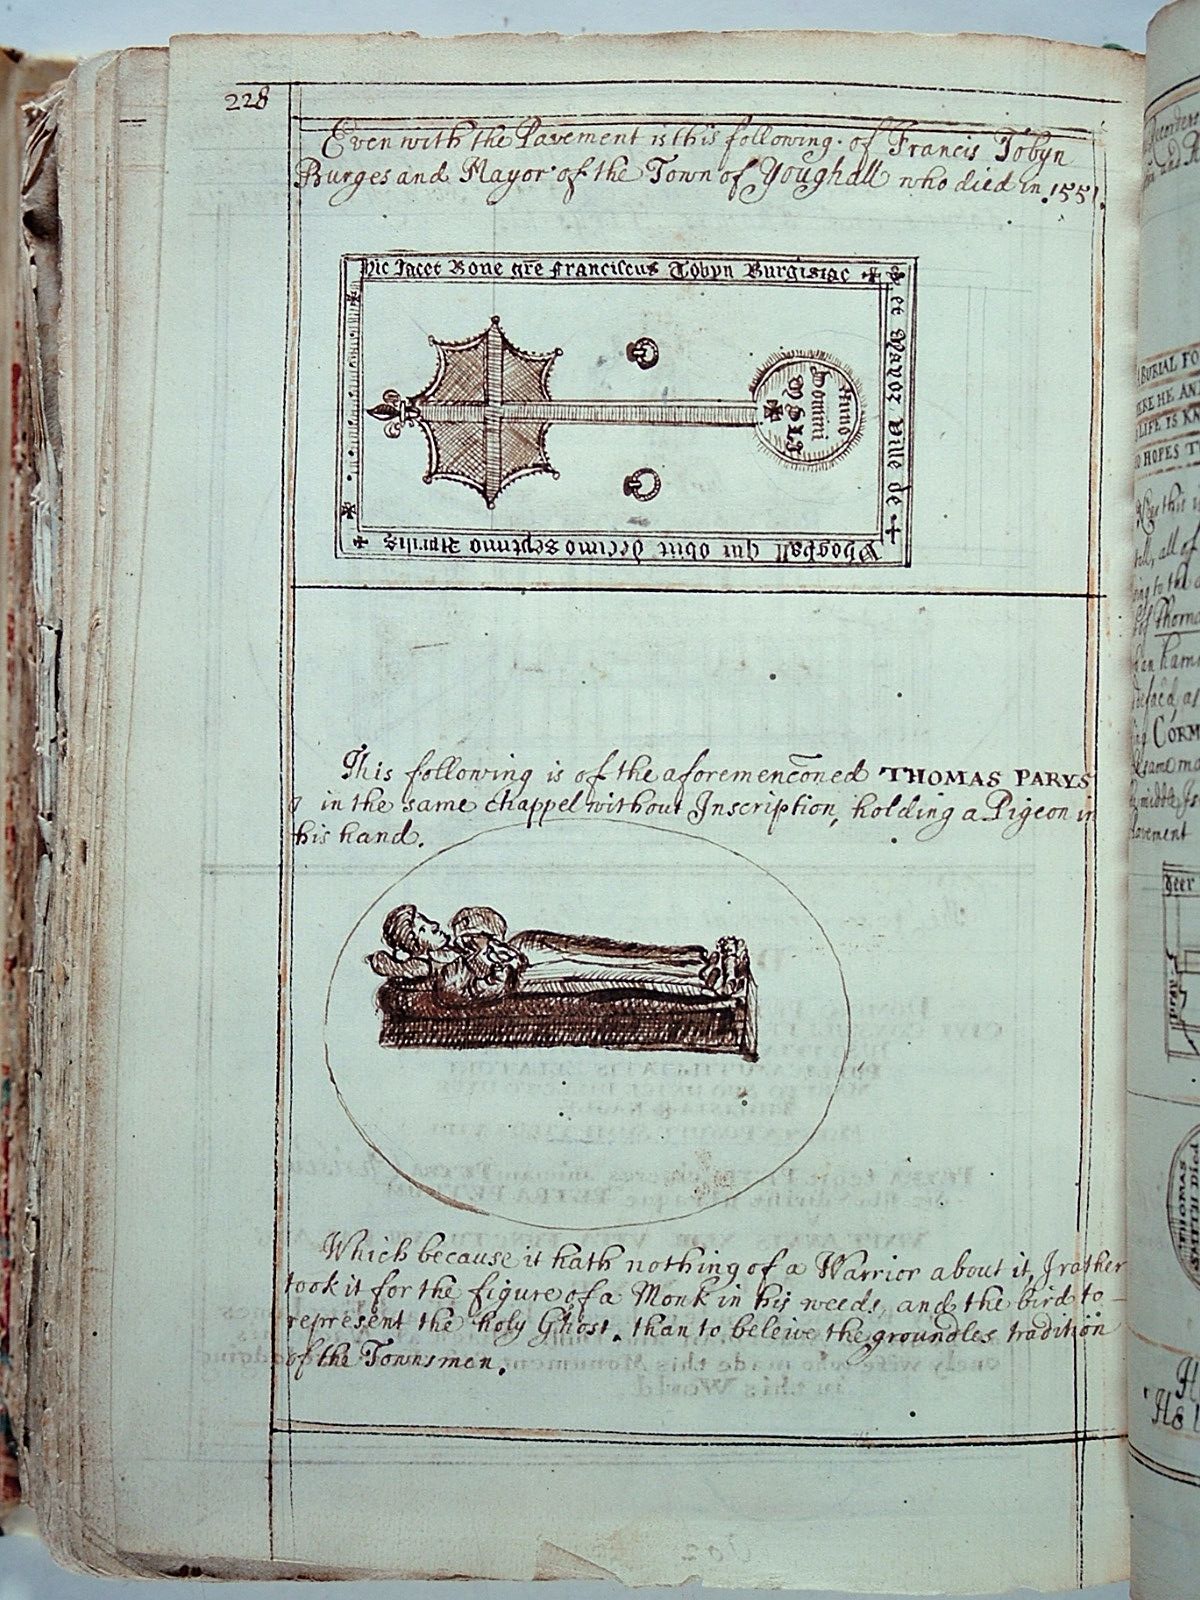 228
Even with the Pavement is this following of Francis Tobyn
Burges and Mayor of the Town of Youghall who died in 1551.
Hic Iacet Bone gre Franciscus Tobyn Burgisiac
et Mayor Ville de
Yhoghall qui obiit decimo Septimo Aprilis
Anno
Domini
This following is of the aforemenconed THOMAS PARYS
in the same chappel without Inscription, holding a Pigeon in
his hand.
Which because it hath nothing of a Warrior about it, I rather
took it for the figure of a Monk in his weeds, and the bird to
represent the holy Ghost, than to beleive the groundles tradition
of the Townsmen.